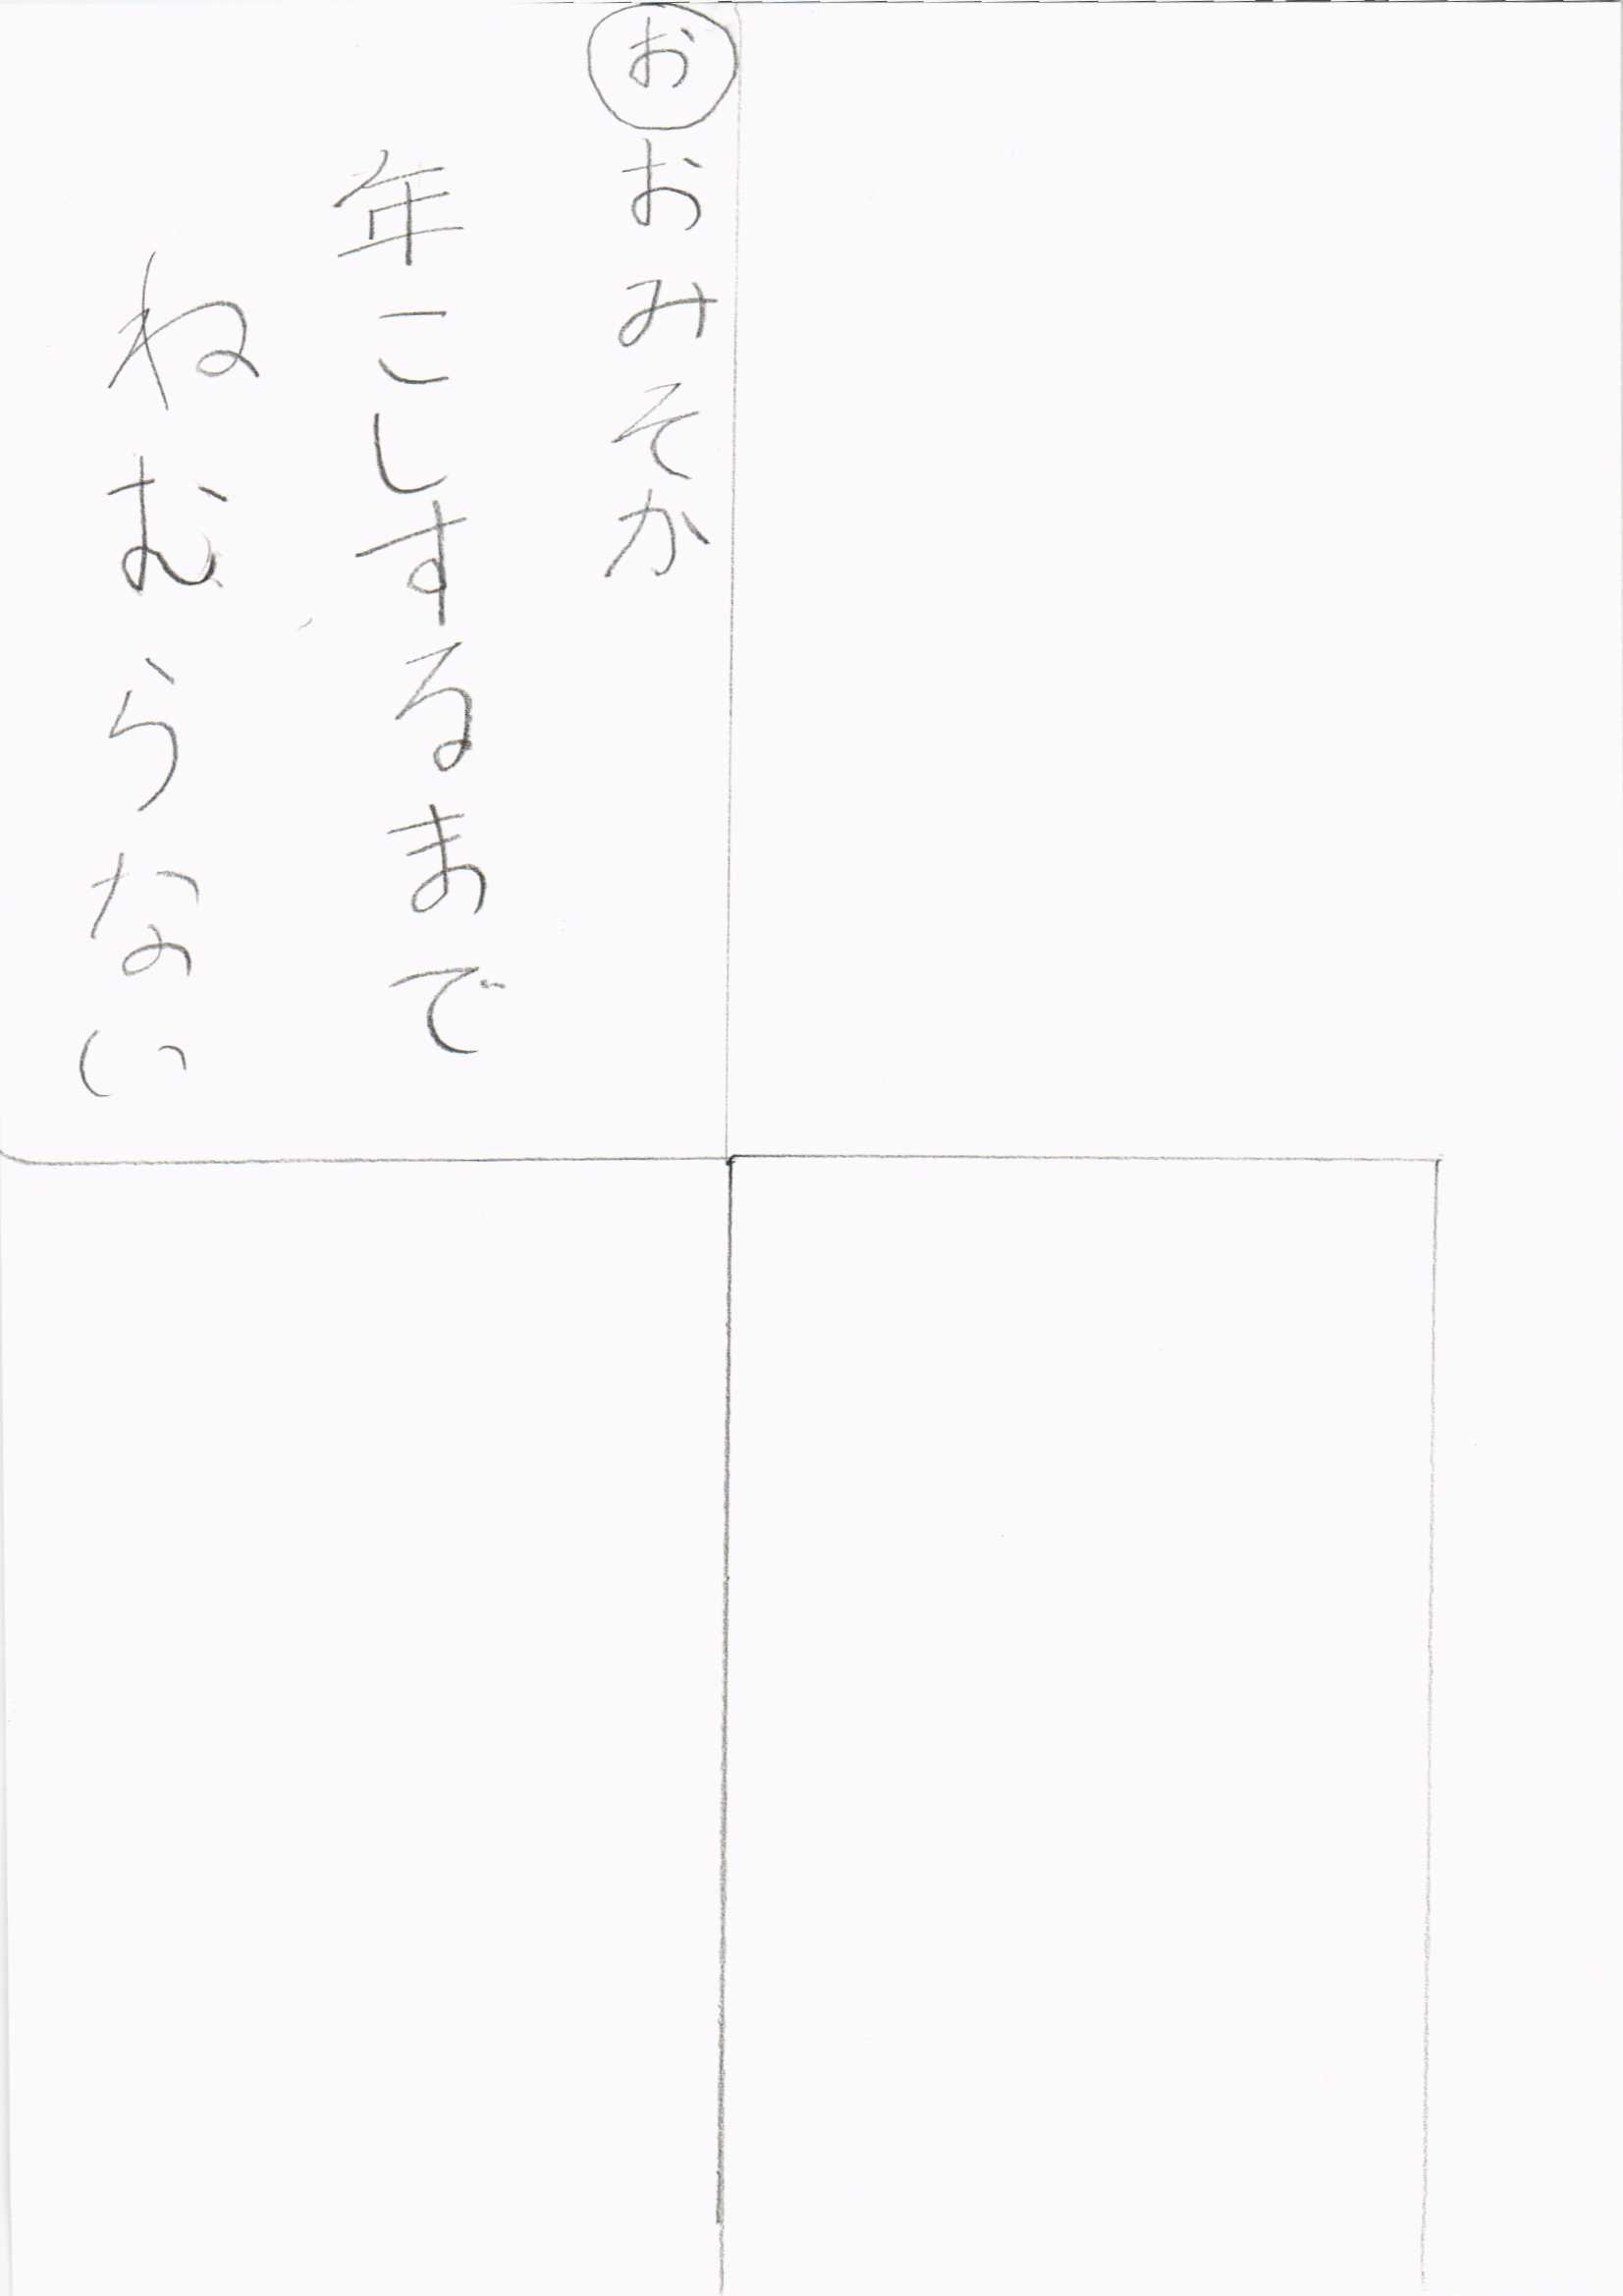 お
おみそか
年こしするまで
ねむらない